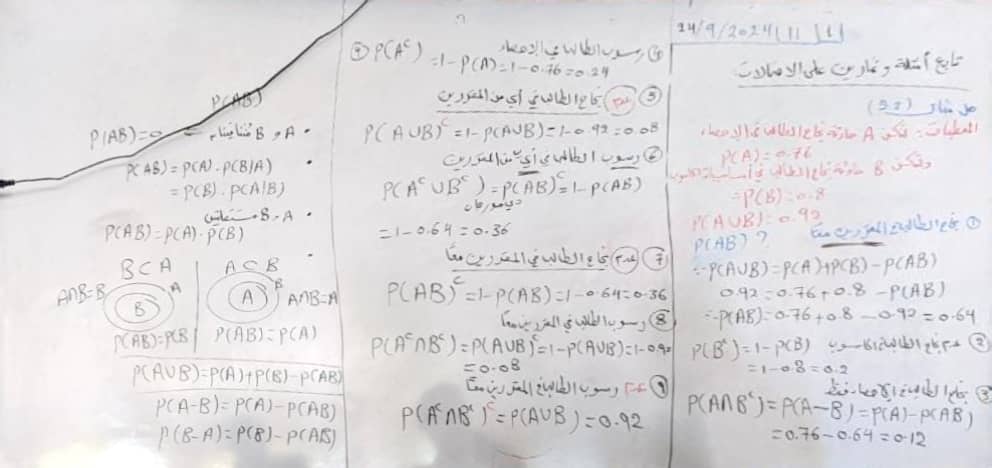 24/9/2024
تابع أمثلة وتمارين على الاحتمالات
حل مثال (2.2)
المعطيات: لتكن A حادثة نجاح الطالب في الإحصاء
P(A) = 0.76
ولتكن B حادثة نجاح الطالب في أساسيات الحاسوب
= P(B) = 0.8
P(A∪B) = 0.92
① نجاح الطالب في المقررين معًا
P(AB) ?
∴ P(A∪B) = P(A)+P(B) - P(AB)
0.92 = 0.76 + 0.8 - P(AB)
∴ P(AB) = 0.76 + 0.8 - 0.92 = 0.64
② عدم نجاح الطالب في الحاسوب P(Bᶜ) = 1 - P(B)
= 1 - 0.8 = 0.2
③ نجاح الطالب في الإحصاء فقط
P(A∩Bᶜ) = P(A-B) = P(A) - P(AB)
= 0.76 - 0.64 = 0.12
④ رسوب الطالب في الإحصاء
P(Aᶜ) = 1 - P(A) = 1 - 0.76 = 0.24
⑤ عدم نجاح الطالب في أي من المقررين
P(A∪B)ᶜ = 1 - P(A∪B) = 1 - 0.92 = 0.08
⑥ رسوب الطالب في أي من المقررين
P(Aᶜ∪Bᶜ) = P(AB)ᶜ = 1 - P(AB)
ديمورجان
= 1 - 0.64 = 0.36
⑦ عدم نجاح الطالب في المقررين معًا
P(AB)ᶜ = 1 - P(AB) = 1 - 0.64 = 0.36
⑧ رسوب الطالب في المقررين معًا
P(Aᶜ∩Bᶜ) = P(A∪B)ᶜ = 1 - P(A∪B) = 1 - 0.92
= 0.08
⑨ عدم رسوب الطالب في المقررين معًا
P(Aᶜ∩Bᶜ)ᶜ = P(A∪B) = 0.92
P(AB)
• A و B متنافيتان P(AB) = 0
• P(AB) = P(A) . P(B|A)
= P(B) . P(A|B)
• A و B مستقلتين
P(AB) = P(A) . P(B)
B ⊂ A
A∩B = B
A
B
P(AB) = P(B)
A ⊂ B
B
A
A∩B = A
P(AB) = P(A)
P(A∪B) = P(A) + P(B) - P(AB)
P(A-B) = P(A) - P(AB)
P(B-A) = P(B) - P(AB)